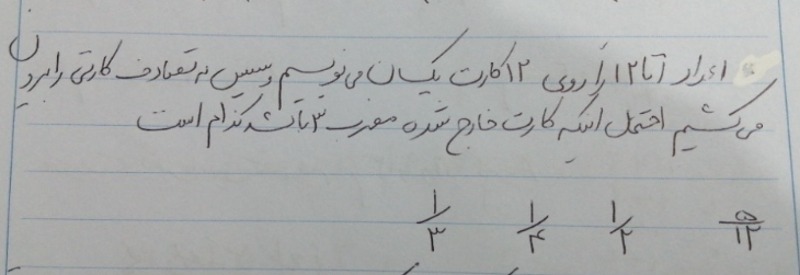 اعداد ۱ تا ۱۲ را روی ۱۲ کارت یکسان می نویسیم و سپس به تصادف کارتی را بیرون
می کشیم احتمال اینکه کارت خارج شده مضرب ۳ باشد کدام است
۵/۱۲ ۱/۲ ۱/۴ ۱/۳